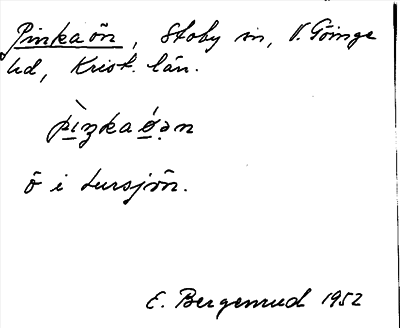 Pinkaön, Stoby sn, V. Göinge
hd, Krist. län.
pìŋkaǿ̤ən
ö i Lursjön.
E. Bergenrud 1952